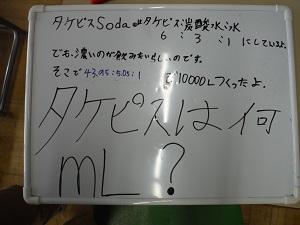 タケピスSodaはタケピス:炭酸水:水
6:3:1にしている。
でも、濃いのが飲みたいらしいのです。
そこで43.95:5.05:1で10000Lつくったよ。
タケピスは何
mL?